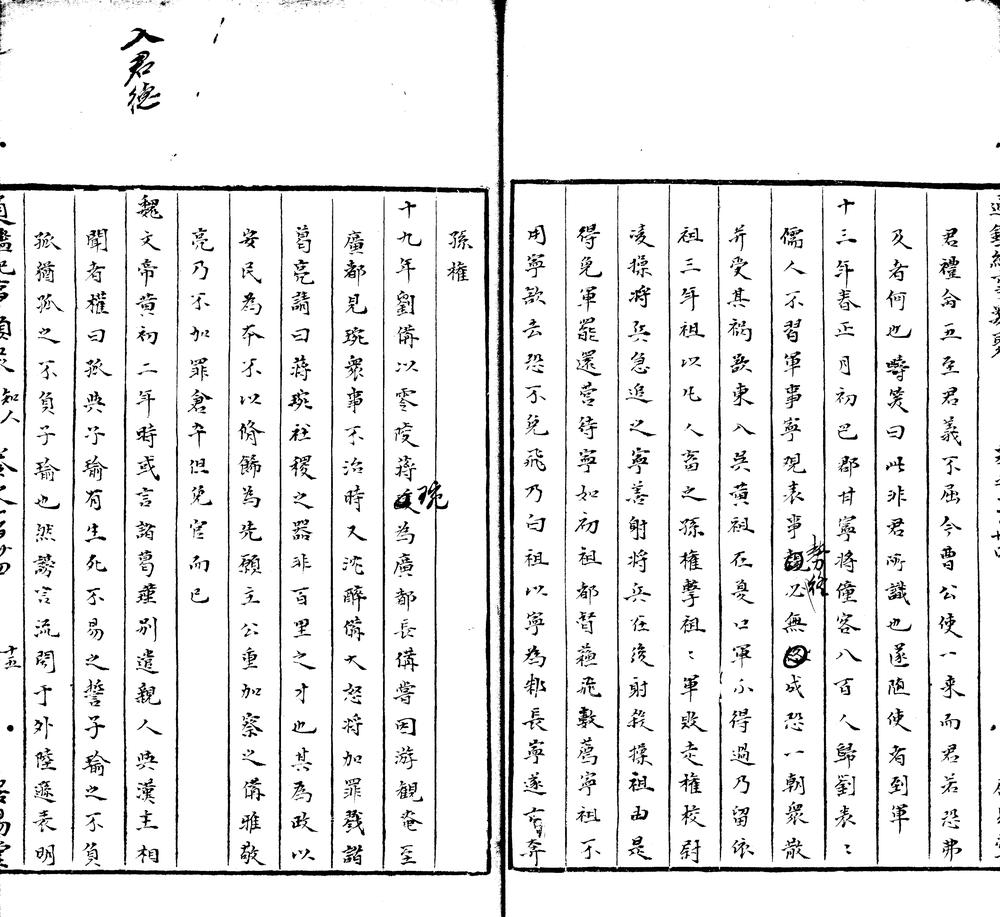 君禮命五至君義不屈今曹公使一來而君若恐弗
及者何也疇笑曰此非君所識也遂隨使者到軍
十三年春正月初巴郡甘寧將僮客八百人歸劉表〻
儒人不習軍事寧觀表事勢終必無成恐一朝衆散
并受其禍欲東入吳黃祖在夏口軍不得過乃留依
祖三年祖以凡人畜之孫權擊祖〻軍敗走權校尉
凌操將兵急追之寧善射將兵在後射殺操祖由是
得免軍罷還營待寧如初祖都督蘇飛數薦寧祖不
用寧欲去恐不免飛乃白祖以寧為邾長寧遂奔
孫權
十九年劉備以零陵蔣琬為廣都長備嘗因游觀奄至
廣都見琬衆事不治時又沈醉備大怒將加罪戮諸
葛亮請曰蔣琬社稷之器非百里之才也其為政以
安民為本不以脩飾為先願主公重加察之備雅敬
亮乃不加罪倉卒但免官而已
魏文帝黃初二年時或言諸葛瑾別遣親人與漢主相
聞者權曰孤與子瑜有生死不易之誓子瑜之不負
孤猶孤之不負子瑜也然謗言流聞于外陸遜表明
入君德
知人
十五